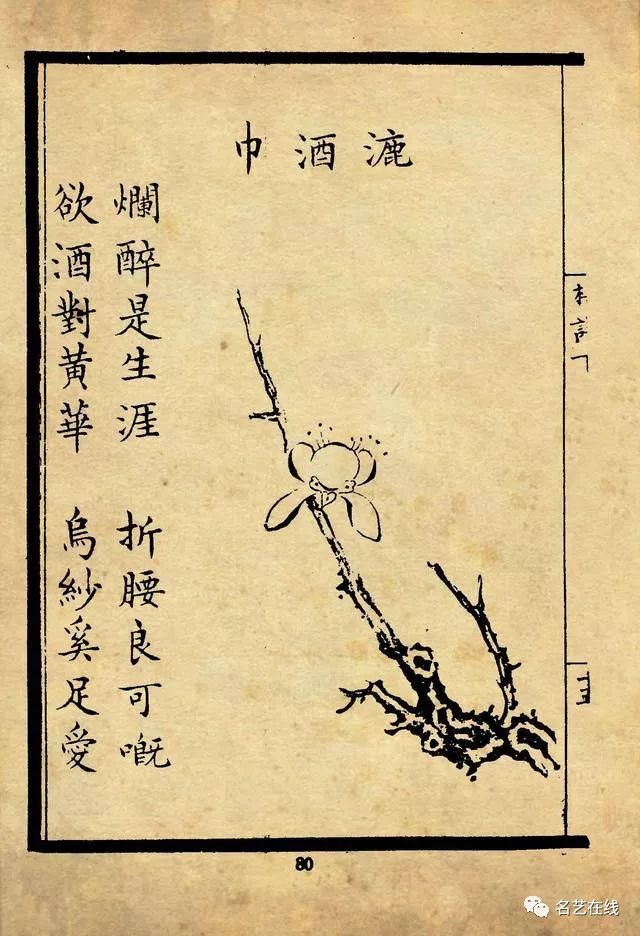 漉酒巾
爛醉是生涯　折腰良可嘅
欲酒對黃華　烏紗奚足愛
80
名艺在线